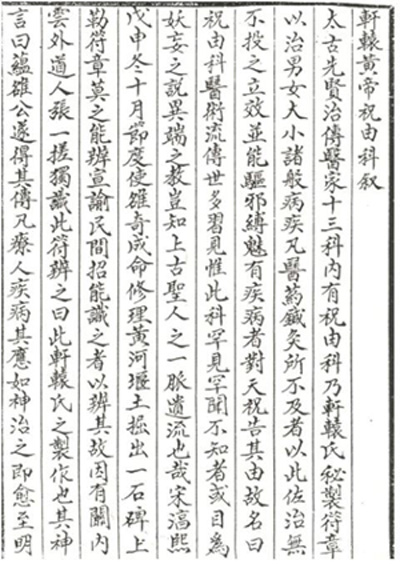 軒轅黃帝祝由科叙
太古先賢治傳醫家十三科內有祝由科乃軒轅氏秘製符章
以治男女大小諸般病疾凡醫藥鍼灸所不及者以此佐治無
不投之立效並能驅邪縛魅有疾病者對天祝告其由故名曰
祝由科醫術流傳世多習見惟此科罕見罕聞不知者或目為
妖妄之說異端之教豈知上古聖人之一脈遺流也哉宋淳熙
戊申冬十月節度使雒奇成命修理黃河堰土掘出一石碑上
勒符章莫之能辨宣諭民間招能識之者以辨其故因有關內
雲外道人張一搓獨識此符辨之曰此軒轅氏之製作也其神
言曰蘊雒公遂得其傳凡療人疾病其應如神治之即愈至明